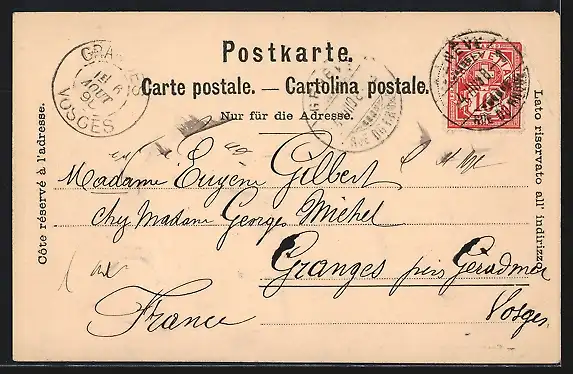 Postkarte.
Carte postale. — Cartolina postale.
Nur für die Adresse.
Côte réservé à l'adresse.
Lato riservato all' indirizzo.
AOUT
VOSGES
10
Madame Eugène Gilbert
chez Madame Georges Michel
Granges près Gérardmer
Vosges
France